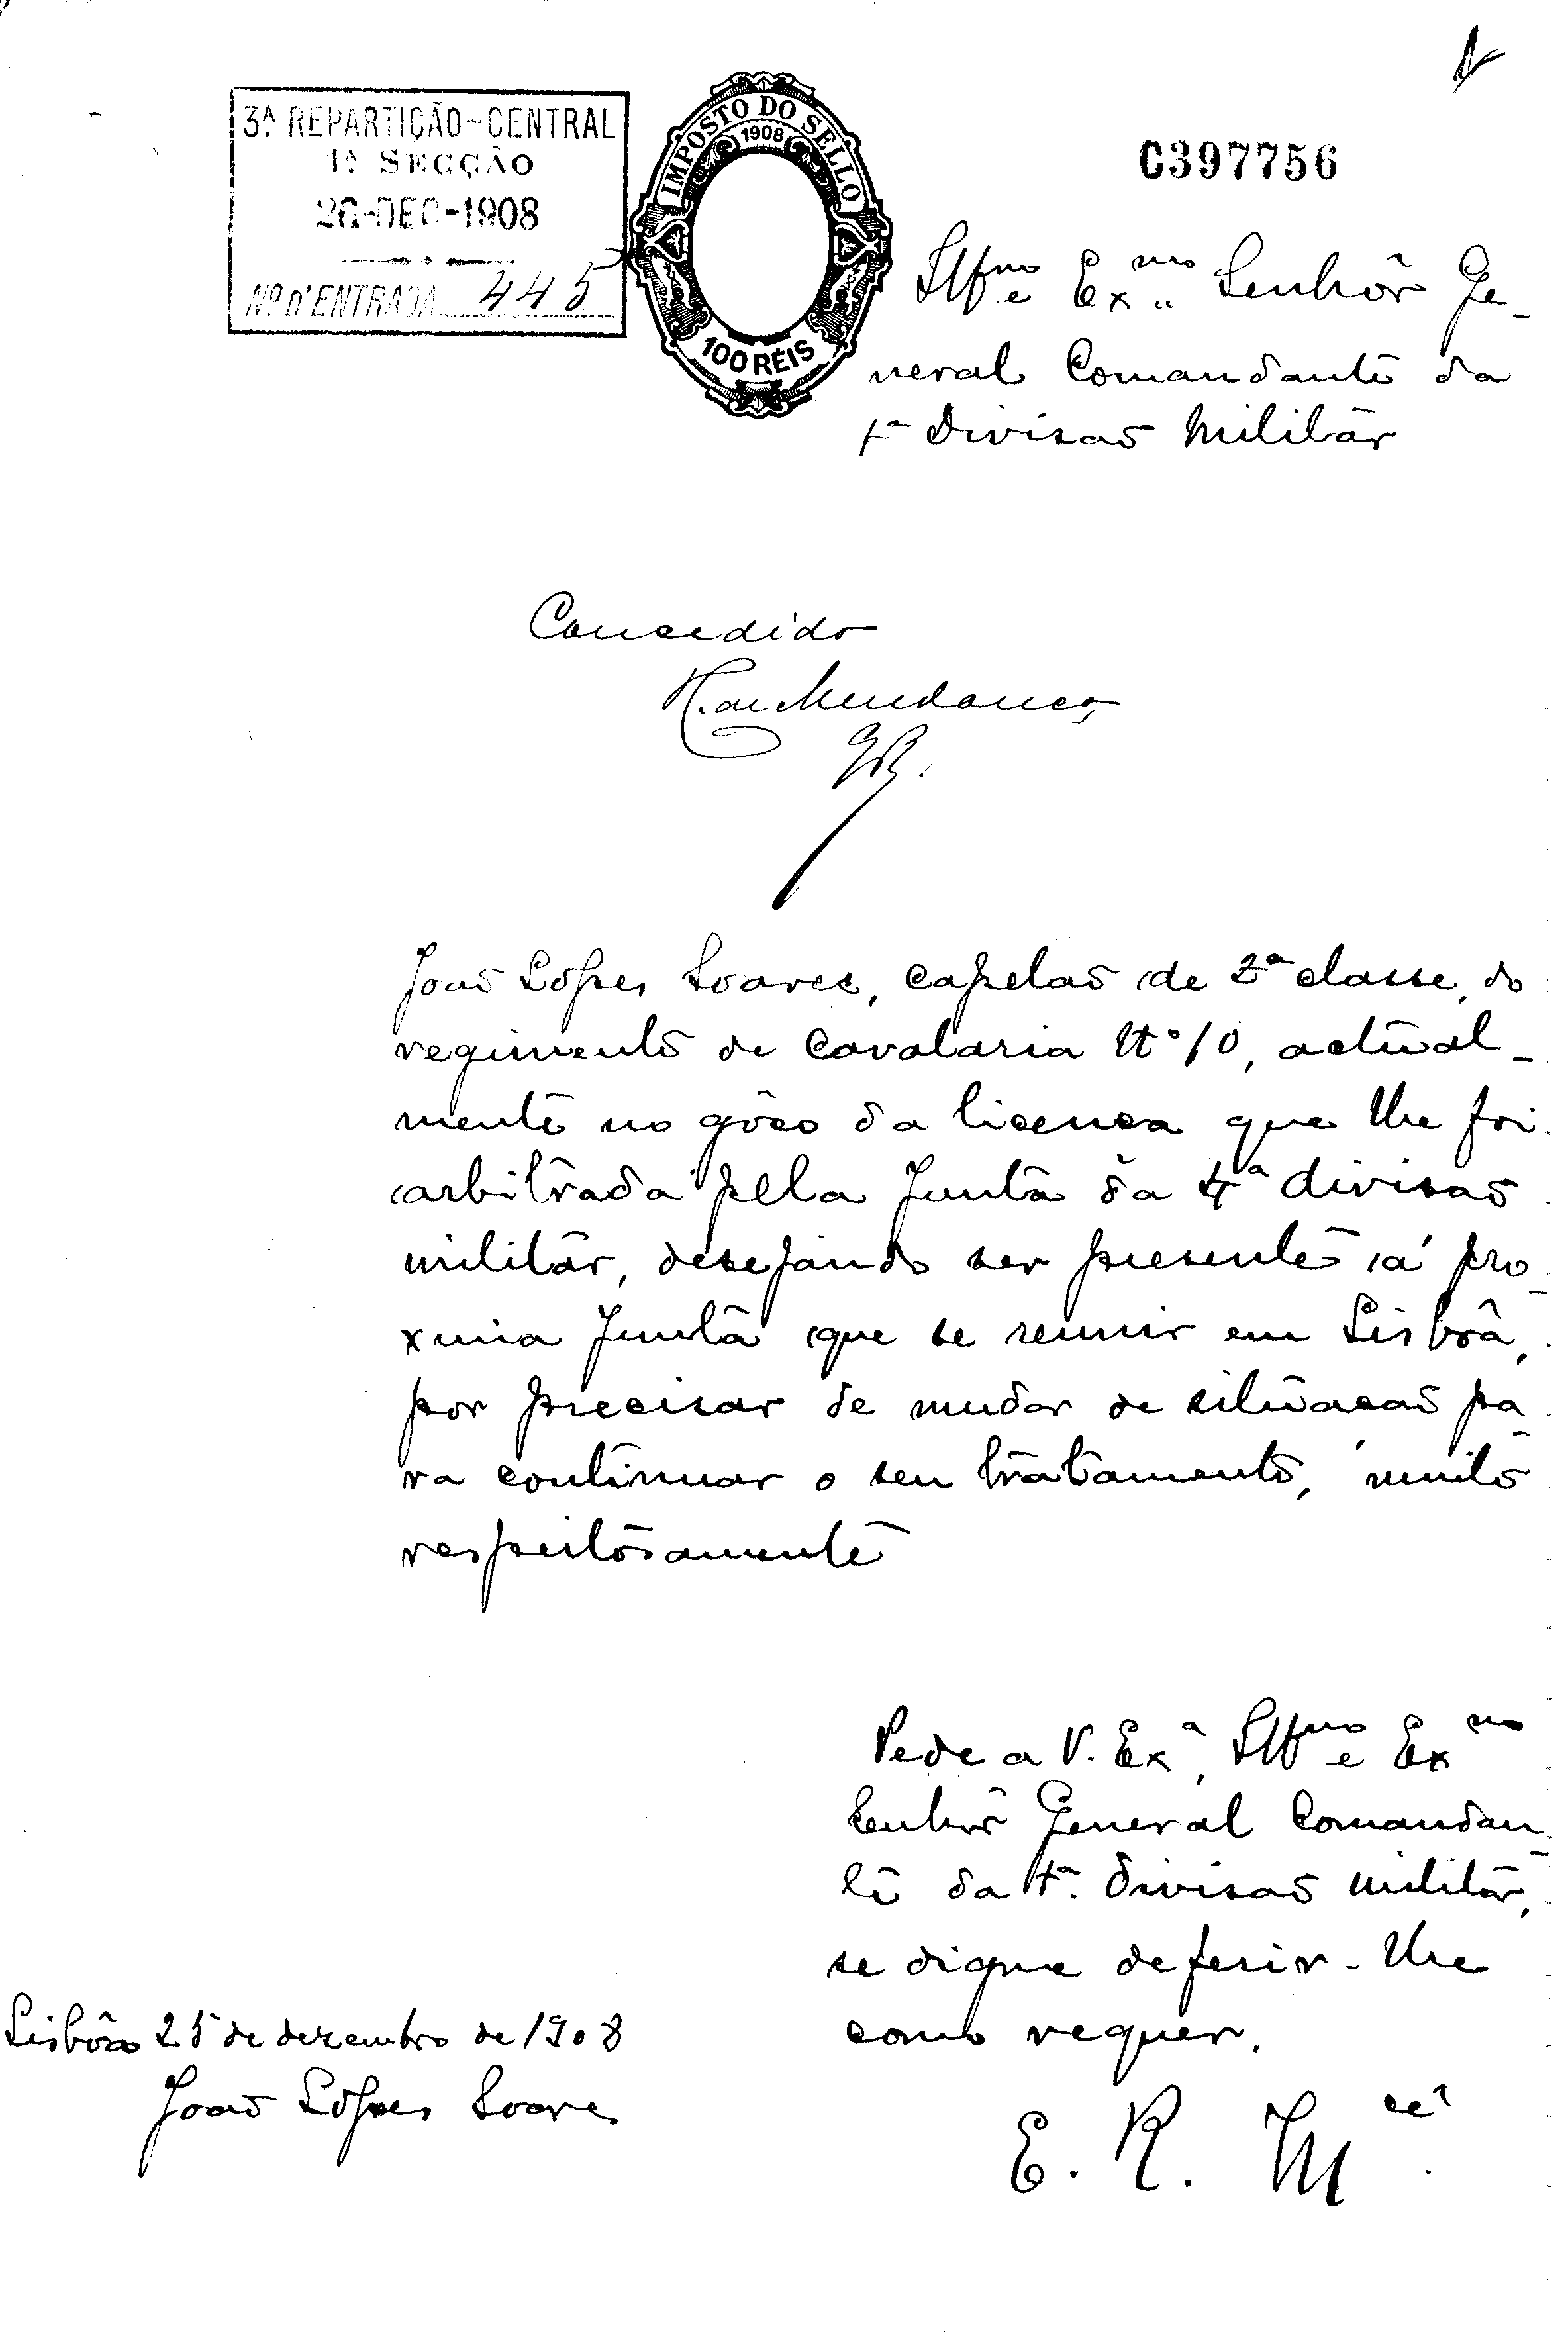 3ª REPARTIÇÃO-CENTRAL
1ª SECÇÃO
26-DEC-1908
Nº D'ENTRADA 445
IMPOSTO DO SELLO
1908
100 RÉIS
C397756
Illmo e Exmo Senhôr Ge-
neral Comandante da
1ª Divisaõ Militar
Concedido
João Lopes Soares, capelaõ de 2ª classe, do
regimento de Cavalaria Nº 10, actual-
mente no gôso da licença que lhe foi
arbitrada pela Junta da 4ª divisaõ
militar, desejando ser presente á pro-
xima Junta que se reunir em Lisbôa,
por precisar de mudar de situaçaõ pa-
ra continuar o seu tratamento, muito
respeitosamente
Pede a V. Exª, Illmo e Exmo
Senhôr General Comandan-
te da 1ª. divisaõ militar,
se digne deferir-lhe
como requer.
Lisbôa 25 de dezembro de 1908
João Lopes Soares
E. R. Mcê.